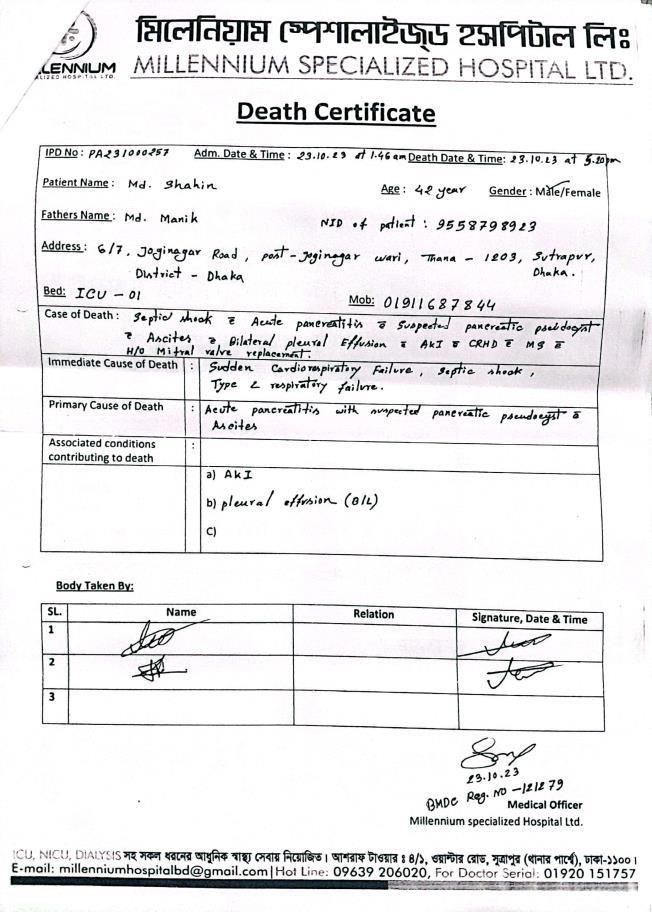 মিলেনিয়াম স্পেশালাইজ্‌ড হসপিটাল লিঃ
MILLENNIUM SPECIALIZED HOSPITAL LTD.
LLENNIUM
ALIZED HOSPITAL LTD.
Death Certificate
IPD No : PA231000257 Adm. Date & Time : 23.10.23 at 1.46am Death Date & Time: 23.10.23 at 5.20pm
Patient Name : Md. Shahin Age : 42 year Gender : Male/Female
Fathers Name : Md. Manik NID of patient : 9558798923
Address : 6/7, Joginagar Road, post-Joginagar wari, Thana - 1203, Sutrapur,
District - Dhaka Dhaka.
Bed: ICU - 01 Mob: 01911687844
Case of Death : Septic shock c̄ Acute pancreatitis c̄ Suspected pancreatic pseudocyst
c̄ Ascites c̄ Bilateral pleural Effusion c̄ AKI c̄ CRHD c̄ MS c̄
H/O Mitral valve replacement.
Immediate Cause of Death : Sudden Cardiorespiratory Failure, Septic shock,
Type 2 respiratory failure.
Primary Cause of Death : Acute pancreatitis with suspected pancreatic pseudocyst c̄
Ascites
Associated conditions :
contributing to death
a) AKI
b) pleural effusion (B/L)
C)
Body Taken By:
SL. Name Relation Signature, Date & Time
1
2
3
23.10.23
BMDC Reg. NO - 121279
Medical Officer
Millennium specialized Hospital Ltd.
ICU, NICU, DIALYSIS সহ সকল ধরনের আধুনিক স্বাস্থ্য সেবায় নিয়োজিত। আশরাফ টাওয়ার ঃ ৪/১, ওয়াল্টার রোড, সূত্রাপুর (থানার পার্শ্বে), ঢাকা-১১০০।
E-mail: millenniumhospitalbd@gmail.com|Hot Line: 09639 206020, For Doctor Serial: 01920 151757